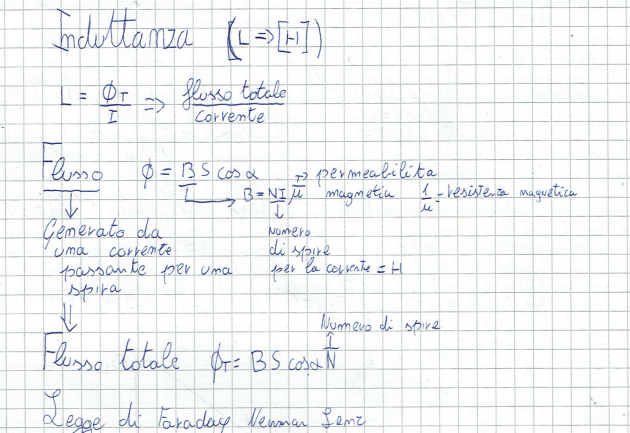 Induttanza (L => [H])
L = ϕT/I => flusso totale/corrente
Flusso ϕ = B S cos α
B = NI μ => permeabilita magnetica 1/μ = resistenza magnetica
Generato da
una corrente
passante per una
spira
Numero
di spire
per la corrente = H
Numero di spire
Flusso totale ϕT = B S cos α N
Legge di Faraday Neuman Lenz